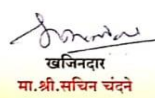 खजिनदार
मा.श्री.सचिन चंदने